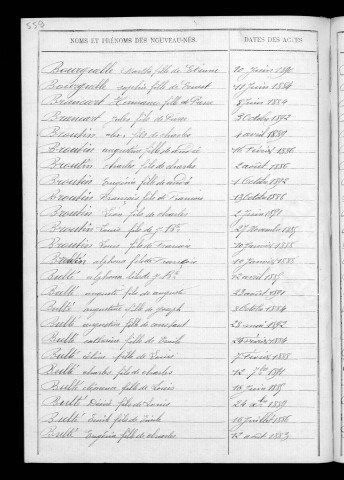 559
NOMS ET PRÉNOMS DES NOUVEAU-NÉS.
DATES DES ACTES
Bourgealle Marthe fille de Etienne 10 Juin 1890
Bourgealle Sophie fille de Ernest 11 Juin 1884
Brancart Hermance fille de Pierre 8 Juin 1884
Brancart Jules fils de Pierre 3 Octobre 1882
Broutin fils de charles 4 avril 1889
Broutin augustine fille de 16 Février 1886
Broutin charles fils de charles 2 août 1886
Broutin Eugénie fille de andré 1 Octobre 1892
Broutin François fils de Francois 13 Octobre 1886
Broutin Léon fils de charles 2 Juin 1891
Broutin Louis fils de J. Bte 27 Novembre 1885
Broutin Louis fils de Francois 30 Janvier 1888
Broutin alphons fils de François 10 Janvier 1885
Bulté alphons fils de J. Bte 12 avril 1885
Bulté auguste fils de auguste 23 août 1891
Bulté augustine fille de Joseph 3 Octobre 1884
Bulté augustin fils de constant 28 mai 1892
Bulté catherine fille de Emile 26 février 1884
Bulté fille de Louis 7 Février 1888
Bulté charles fils de charles 12 1891
Bulté clémence fille de Louis 16 Juin 1885
Bulté Désiré fils de Louis 24 1889
Bulté Emile fils de Emile 16 Juillet 1886
Bulté Eugénie fille de charles 12 août 1883